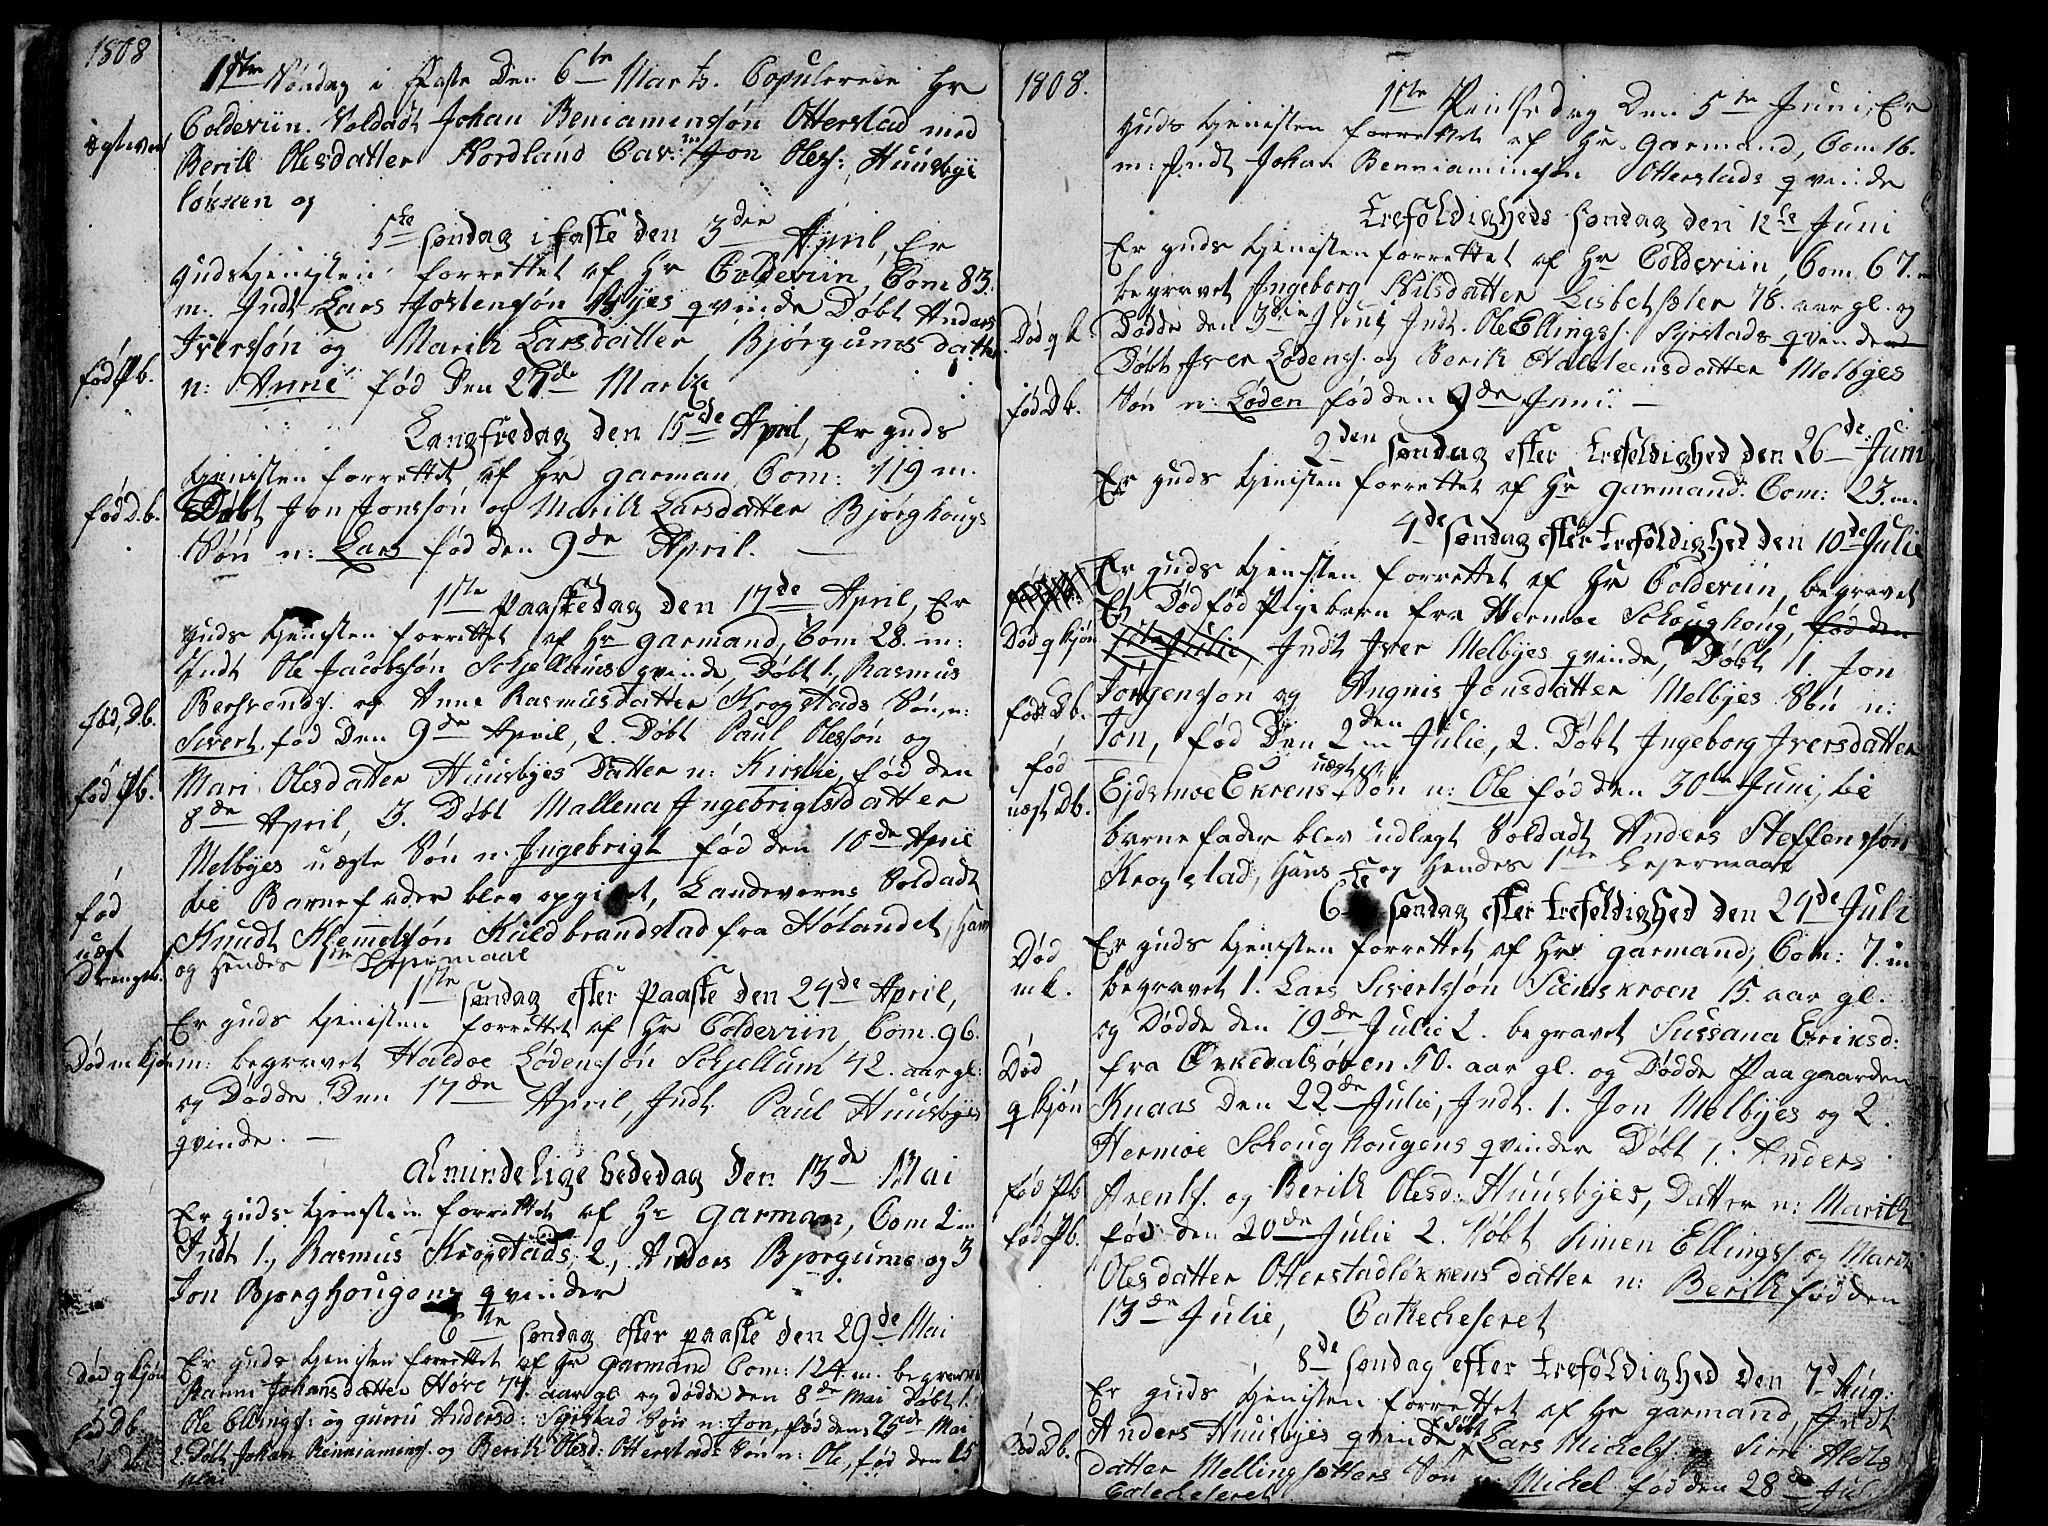 1808
1ste Søndag i Faste Den 6te Marts. Copulerede Hr
Coldeviin. Soldadt Johan Beniaminssøn Otterstad med
Ægtevied
Berith Olesdatter Nordland Cav: Jon Oless: Huusbye
løkken og
5te søndag i faste den 3die April, Er
gudstjenisten forrettet af Hr Coldeviin, Com 83.
m. Indt Lars Jostensøn Byes qvinde Døbt Anders
Iverssøn og Marith Larsdatter Bjørgums datter
fød Pb.
n: Anne fød Den 27de Martz
Langfredag den 15de April, Er guds
tjenisten forrettet af Hr garman Com: 119 m.
fød D.b.
Døbt Jon Jonssøn og Marith Larsdatter Bjørghougs
Søn n: Lars fød den 9de April. —
1ste Paaskedag den 17de April, Er
guds tjenisten forrettet af Hr garmand, Com 28. m:
Indt Ole Jacobssøn Schjellums qvinde, Døbt 1., Rasmus
Berhrends. og Anne Rasmusdatter Krogstads Søn, n:
fød, Db.
Sivert fød Den 9de April, 2. Døbt Paul Olessøn og
Mari Olesdatter Huusbyes Datter n: Kirstie, fød den
fød Pb.
8de April, 3. Døbt Mallena Ingebrigtsdatter
Melbyes uægte Søn n: Ingebrigt fød den 10de April
til Barnefader blev opgivet, Landeværns Soldadt
fød
uægt
Drengeb.
Knudt Klemmetsøn Kuldbrandstad fra Hølandet, Hans
og Hendes 1ste Lejermaal
1ste søndag efter Paaske den 24de April,
Er guds tjenisten forrettet af Hr Coldeviin, Com. 96.
Død m kjøn
m: begravet Haldoe Lødenssøn Schjellum 42. aar gl:
og Dødde Den 17de April, Indt. Paul Huusbyes
qvinde. —
almindelige bededag Den 13de Mai
Er guds tjenisten forrettet af Hr garman, Com 2 m
Indt 1., Rasmus Krogstads, 2., Anders Bjørgums og 3
Jon Bjørghougens qvinder
6te søndag efter paaske den 29de Mai
Er guds tjenisten forrettet af Hr garmand Com: 124. m. begravet
Død q kjøn
Ranni Johansdatter Hove 77. aar gl og dødde den 8de Mai Døbt 1.
Ole Ellings: og gurru Andersd: Syrstad Søn n: Jon, fød den 25de Mai
fød Db.
2. Døbt Johan Benniamins. og Berith Olesd: Otterstads Søn n: Ole, fød den 15
Mai
1808.
1ste Pintsedag Den 5te Juni, Er
guds tjenisten forrettet af Hr. garmand, Com 16.
m: Indt Johan Benniaminsøn Otterstads qvinde
trefoldigheds søndag den 12te Juni
Er guds tjenisten forrettet af Hr Coldeviin, Com 67. m
begravet Ingeborg Nilsdatter Lisbetsæter 78. aar gl. og
Død q k.
Dødde den 3die Juni Indt. Ole Ellings. Syrstads qvinde
Døbt Iver Lødens. og Berith Halsteensdatter Melbyes
fød Db.
Søn n: Løden fød den 9de Juni. —
2den søndag efter trefoldighed den 26de Juni
Er guds tjenisten forrettet af Hr garmand. Com: 23. m.
4de søndag efter trefoldighed den 10de Julie
Er guds tjenisten forrettet af Hr Coldeviin, begravet
Et Dødfød Pigebarn fra Hermoe Schoughoug, fød den
Død q kjøn
1ste Julie, Indt Iver Melbyes qvinde, Døbt 1. Jon
Jørgenssøn og Angnis Jonsdatter Melbyes Søn n:
fød Db.
Jon, fød Den 2den Julie, 2. Døbt Ingeborg Iversdatter
fød
uægt Db.
Ejdsmoe Ekrens uægt Søn n: Ole fød den 30te Juni, til
barnefader blev udlagt Soldadt Anders Steffenssøn
Krogstad, Hans og Hendes 1ste Lejermaal
6te søndag efter trefoldighed den 24de Juli
Er guds tjenisten forrettet af Hr garmand, Com: 7. m
Død
m k.
begravet 1. Lars Sivertsøn Siemskroen 15. aar gl.
og Dødde den 19de Julie 2. begravet Sussana Eriksd:
Død
q kjøn
fra Ørkedalsøren 50. aar gl. og Dødde Paa gaarden
Knaas Den 22de Julie, Indt. 1. Jon Melbyes og 2.
Hermoe Schoughougens qvinder Døbt 1. Anders
fød Pb
Arents. og Berith Olesd: Huusbyes, Datter n: Marith
fød Pb.
fød den 20de Julie 2. Døbt Simen Ellings. og Marit
Olesdatter Otterstadløkkens datter n: Berith fød den
13de Julie, Catecheseret
8de søndag efter trefoldighed den 7d Aug:
Er guds tjenisten forrettet af Hr garmand, Indt
Anders Huusbyes qvinde Døbt Lars Michels. og Siri Alots
fød Db.
datter Mellingsætters Søn n: Michel fød den 28de Juli
Catecheseret